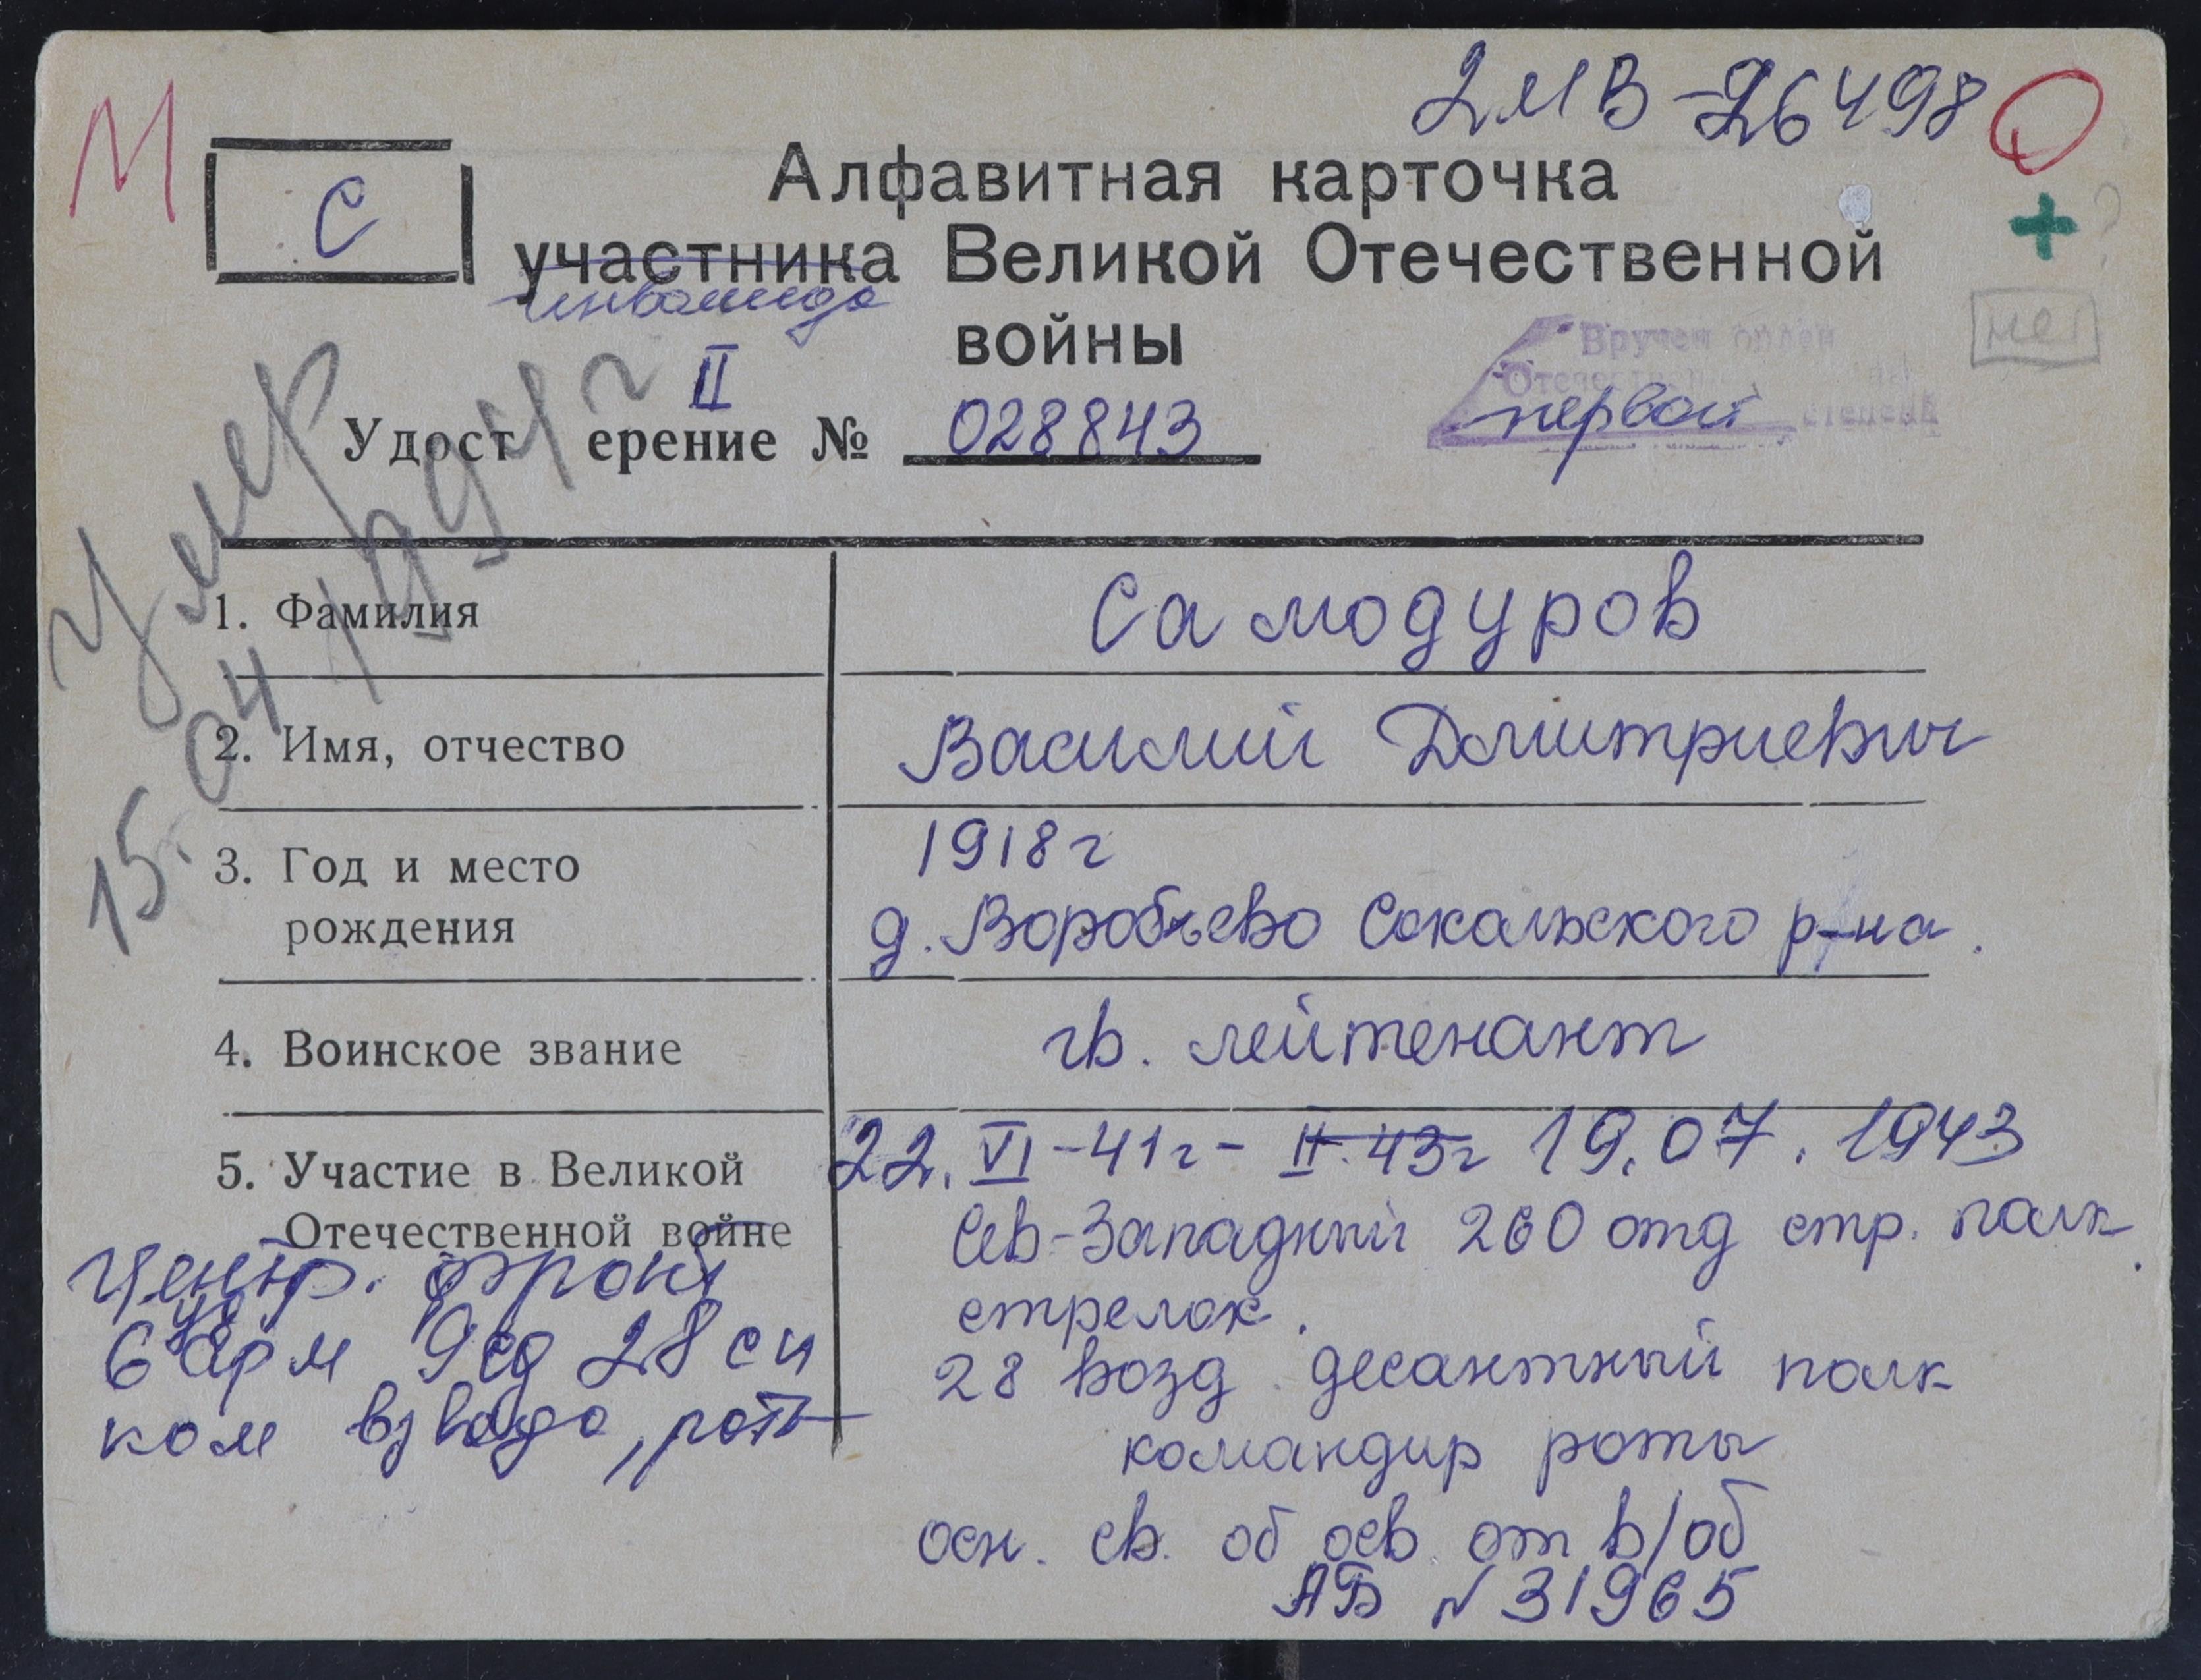 2МВ-26498
М
С
Алфавитная карточка
участника Великой Отечественной
инвалида
войны
нет
Вручен орден
Отечественной
первой степени
II
Удостоверение № 028843
умер
15.04.1994г
1. Фамилия Самодуров
2. Имя, отчество Василий Дмитриевич
3. Год и место рождения 1918г
д. Воробьево Сокольского р-на.
4. Воинское звание гв. лейтенант
5. Участие в Великой Отечественной войне 22.VI-41г- II.43г 19.07.1943
Сев-Западный 260 отд стр. полк.
стрелок.
28 возд. десантный полк
командир роты
осн. св. об осв. от в/об
АБ N 31965
Центр. фронт
6 арм 9сд 28 сп
ком взвода, роты